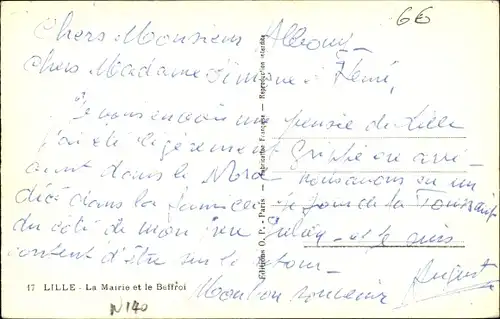 6€
Chers Monsieur Albony
Chers Madame Simone & Henri,
Je vous envoie une pensée de Lille
j'ai été légèrement Grippé en arri-
vant dans le Nord nous avons eu un
décè dans la famille le jour de la Toussaint
du côté de mon père Julien et je suis
content d'être sur le retour -
Mon bon souvenir
August
Editions O. P. - Paris - Fabrication Française - Reproduction interdite
17 LILLE - La Mairie et le Beffroi
N140